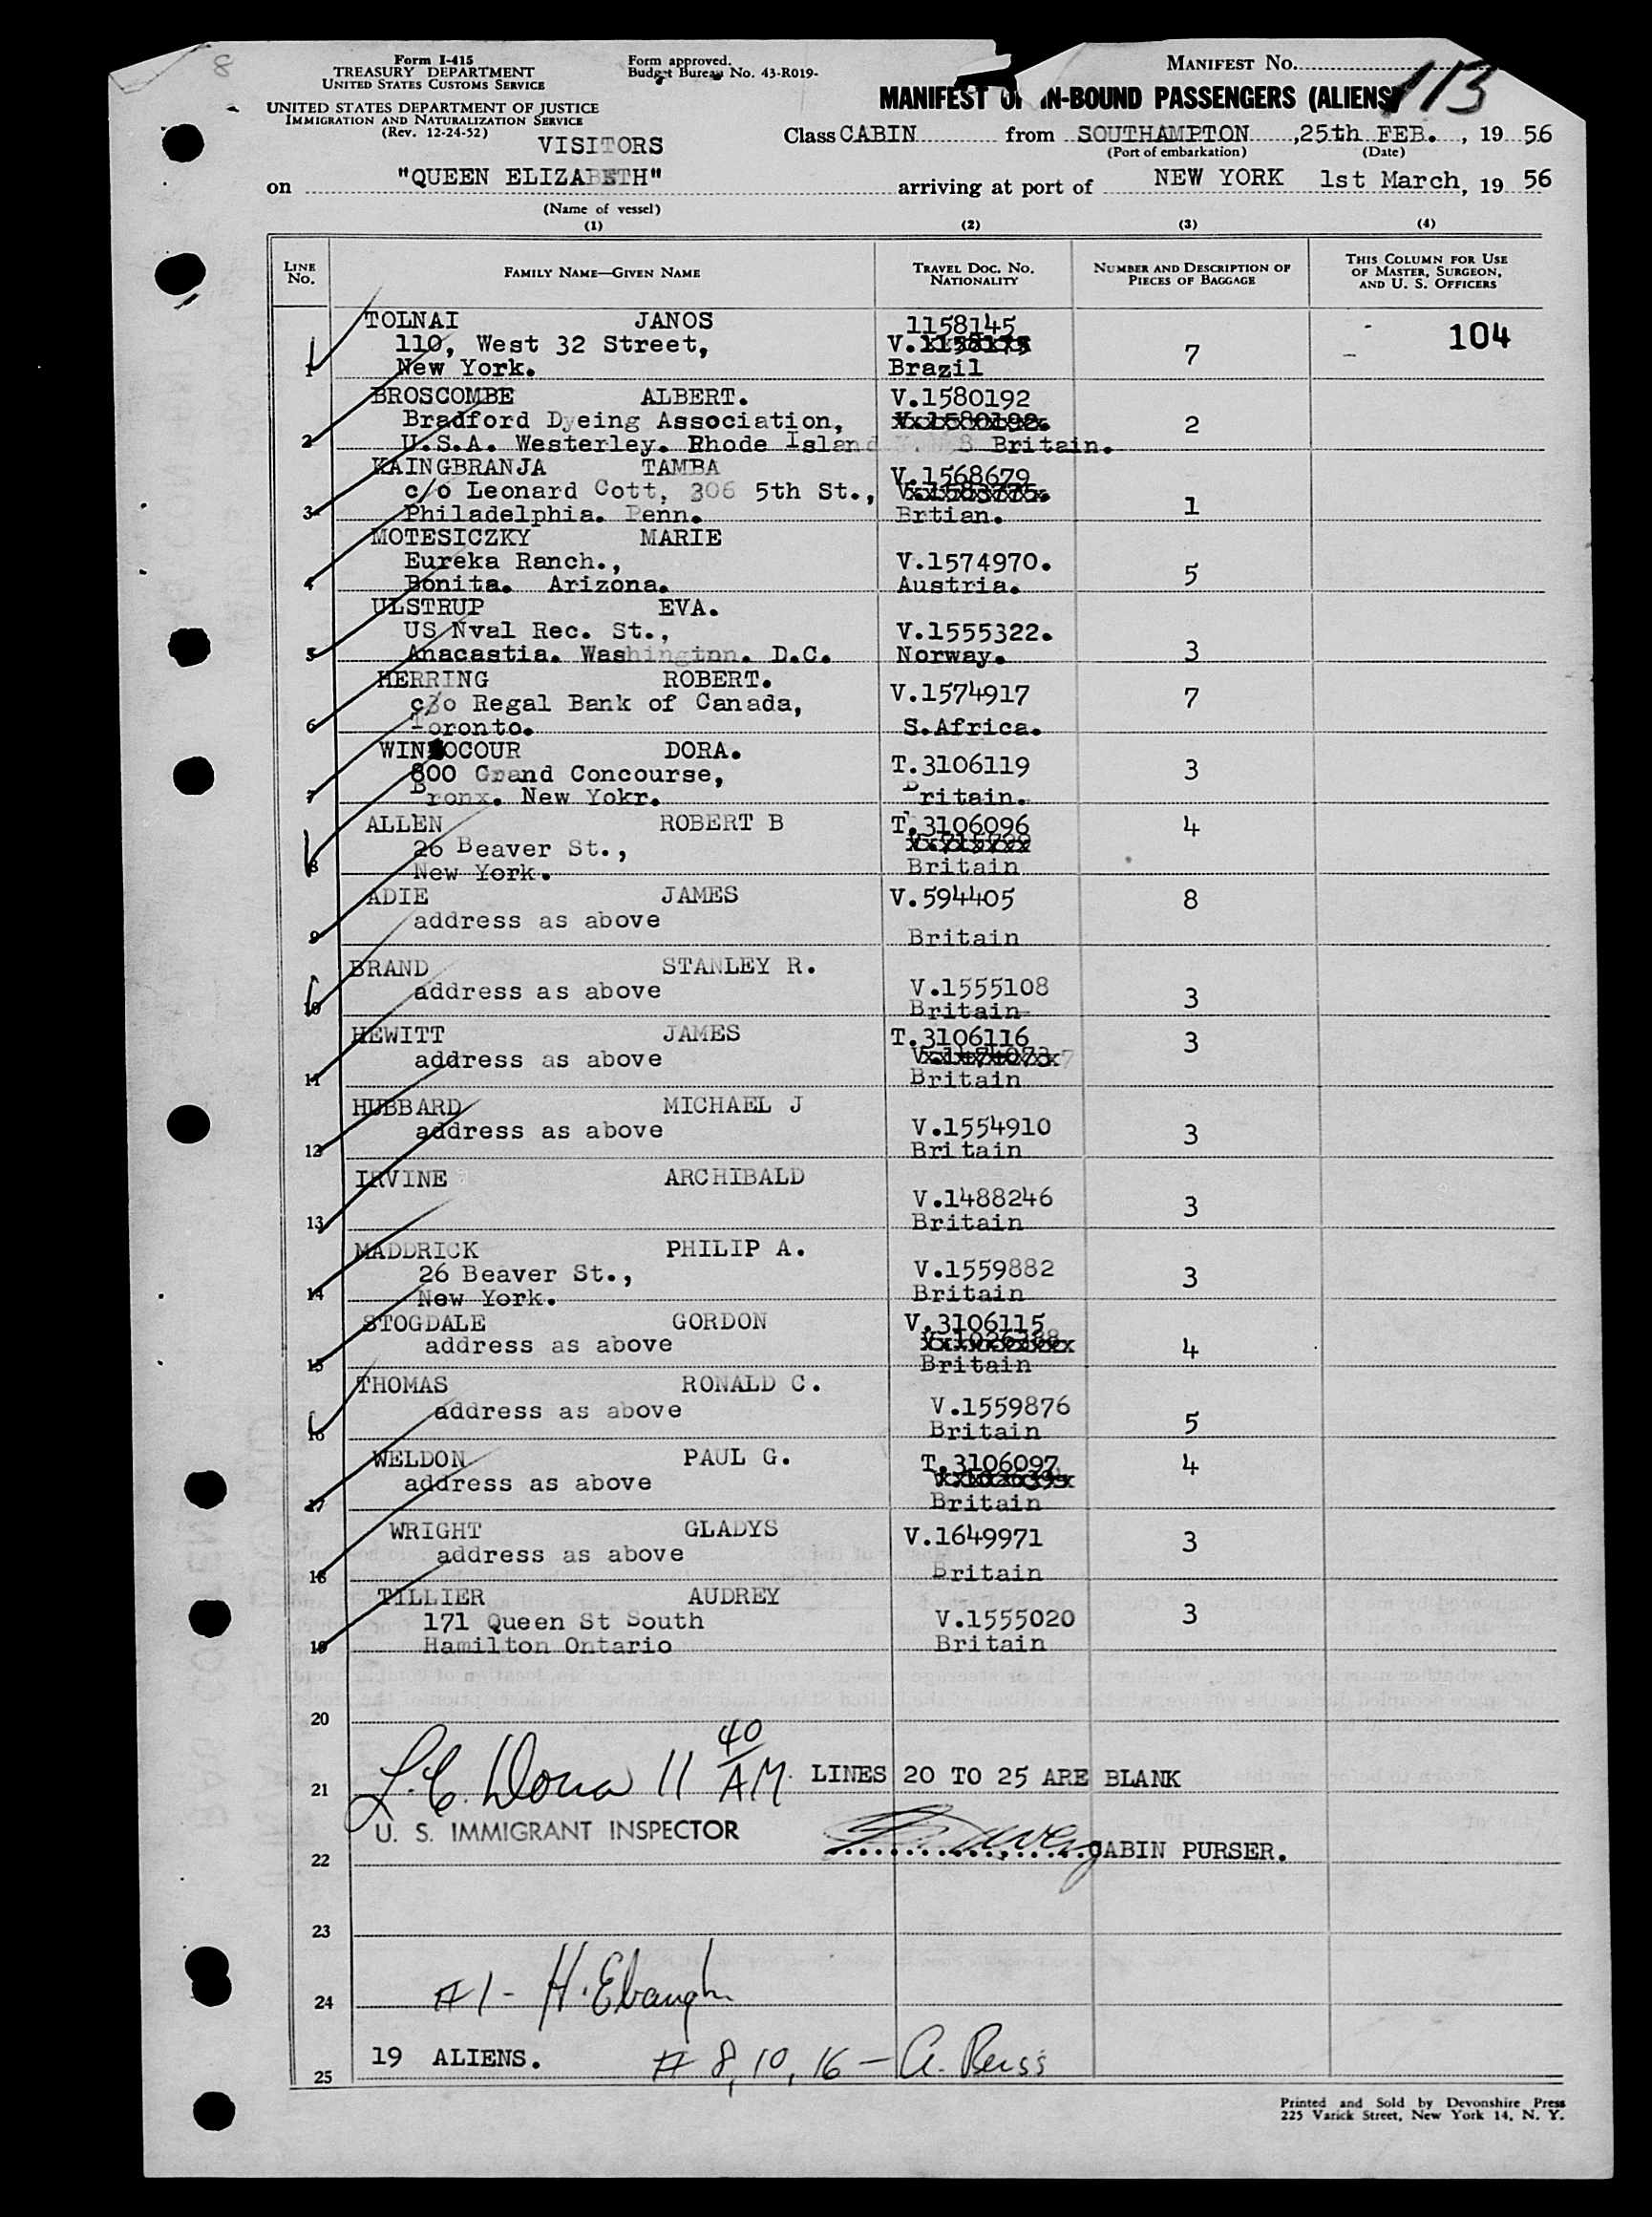 8
Form I-415
TREASURY DEPARTMENT
UNITED STATES CUSTOMS SERVICE
Form approved.
Budget Bureau No. 43-R019-
MANIFEST No.
113
UNITED STATES DEPARTMENT OF JUSTICE
IMMIGRATION AND NATURALIZATION SERVICE
(Rev. 12-24-52)
MANIFEST OF IN-BOUND PASSENGERS (ALIENS)
VISITORS
Class CABIN from SOUTHAMPTON, 25th FEB., 19 56
(Port of embarkation) (Date)
on "QUEEN ELIZABETH" arriving at port of NEW YORK 1st March, 19 56
(Name of vessel)
(1) (2) (3) (4)
LINE No. FAMILY NAME—GIVEN NAME TRAVEL DOC. No. NATIONALITY NUMBER AND DESCRIPTION OF PIECES OF BAGGAGE THIS COLUMN FOR USE OF MASTER, SURGEON, AND U. S. OFFICERS
TOLNAI JANOS 1158145 104
110, West 32 Street, V. 7
1 New York. Brazil
BROSCOMBE ALBERT. V.1580192
Bradford Dyeing Association, V.1580192. 2
2 U.S.A. Westerley. Rhode Island Britain.
KAINGBRANJA TAMBA V.1568679
c/o Leonard Cott, 306 5th St., 1
3 Philadelphia. Penn. Brtian.
MOTESICZKY MARIE
Eureka Ranch., V.1574970. 5
4 Bonita. Arizona. Austria.
ULSTRUP EVA.
US Nval Rec. St., V.1555322.
5 Anacastia. Washinginn. D.C. Norway. 3
HERRING ROBERT. V.1574917 7
c/o Regal Bank of Canada,
6 Toronto. S.Africa.
WINOCOUR DORA. T.3106119 3
800 Grand Concourse,
7 Bronx. New Yokr. Britain.
ALLEN ROBERT B T.3106096 4
26 Beaver St.,
8 New York. Britain
ADIE JAMES V.594405 8
address as above
9 Britain
BRAND STANLEY R.
address as above V.1555108 3
10 Britain
HEWITT JAMES T.3106116 3
address as above
11 Britain
HUBBARD MICHAEL J
address as above V.1554910 3
12 Britain
IRVINE ARCHIBALD
V.1488246 3
13 Britain
MADDRICK PHILIP A.
26 Beaver St., V.1559882 3
14 New York. Britain
STOGDALE GORDON V.3106115
address as above 4
15 Britain
THOMAS RONALD C.
address as above V.1559876 5
16 Britain
WELDON PAUL G. T.3106097 4
address as above
17 Britain
WRIGHT GLADYS V.1649971 3
address as above
18 Britain
TILLIER AUDREY
171 Queen St South V.1555020 3
19 Hamilton Ontario Britain
20
11 40/AM LINES 20 TO 25 ARE BLANK
21
U. S. IMMIGRANT INSPECTOR
CABIN PURSER.
22
23
#1 - H. Ebaugh
24
19 ALIENS. # 8, 10, 16 — A. Reiss
25
Printed and Sold by Devonshire Press
225 Varick Street, New York 14, N. Y.